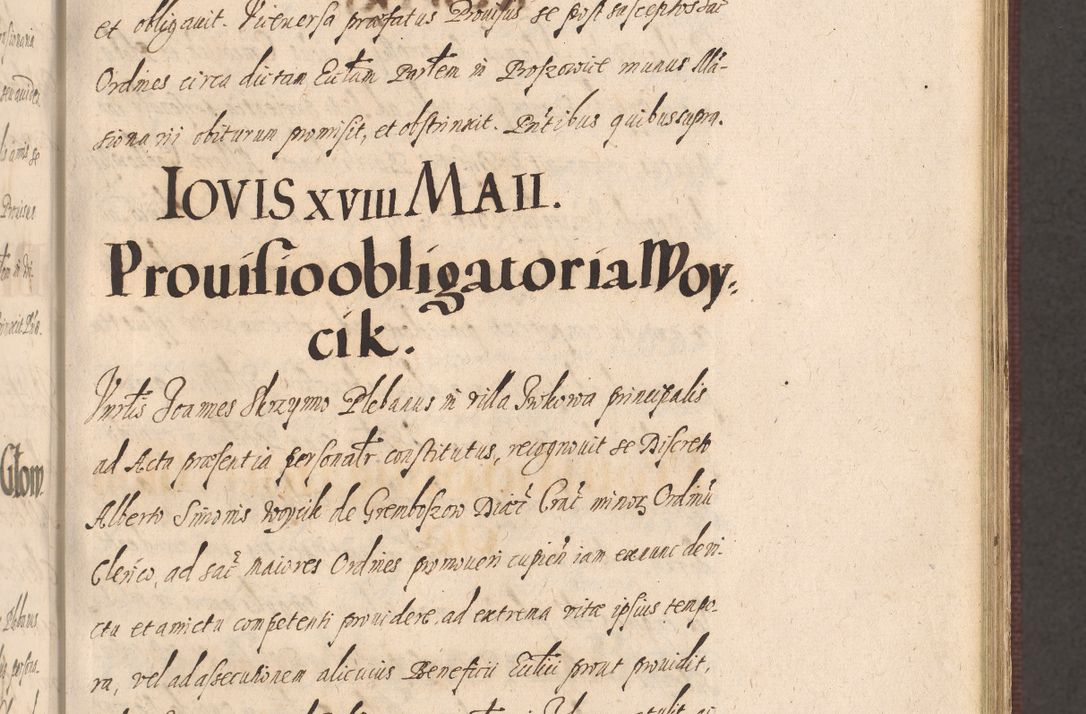 et obligavit. Viceversa præfatus Prouisus se post susceptos sac
Ordines circa dictam Ecclam Partem in Proszowice munus Má-
sionarii obiturum promisit, et obstrinxit. Pntibus quibus supra.
IOVIS XVIII MAII.
Prouisio obligatoria Woy-
cik.
Vnrlis Joannes Skrzynno Plebanus in villa principalis
ad Acta præsentia personalr constitutus, recognouit se Discreto
Alberto Simonis Woycik de Gremboszow Diæc Crac minoꝝ Ordinu
Clerico, ad sac maiores Ordines promoveri cupien iam exnunc de vi-
ctu et amictu competenti prouidere, ad extrema vitæ ipsius tempo-
ra, vel ad assecutionem alicuius Beneficii Ecclici prout prouidit,